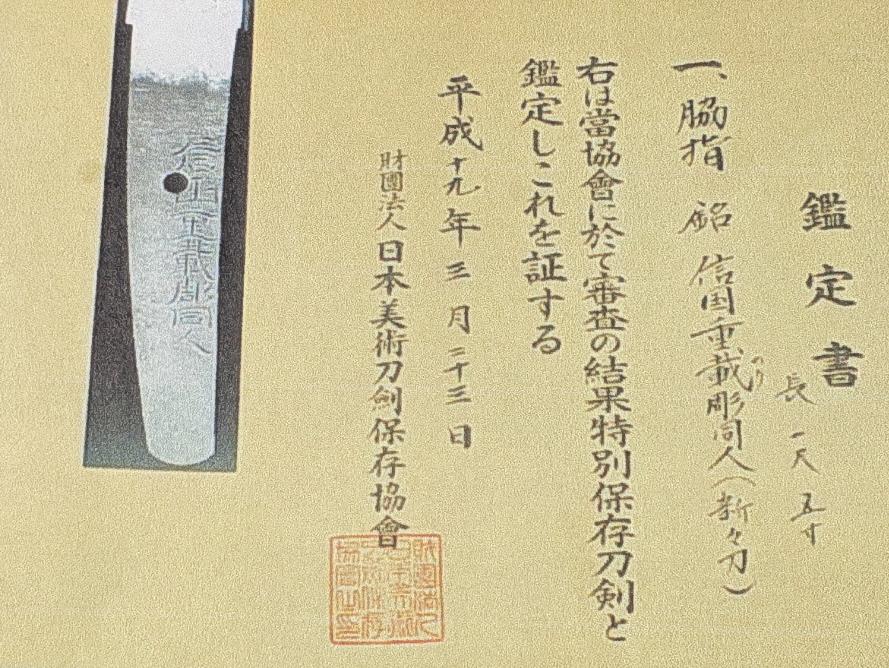 鑑定書
長 一尺 五寸
一、脇指 銘 信国重載彫同人(新々刀)
のり
右は當協會に於て審査の結果特別保存刀剣と
鑑定しこれを証する
平成十九年三月二十三日
財團法人日本美術刀剣保存協會
信国重載彫同人